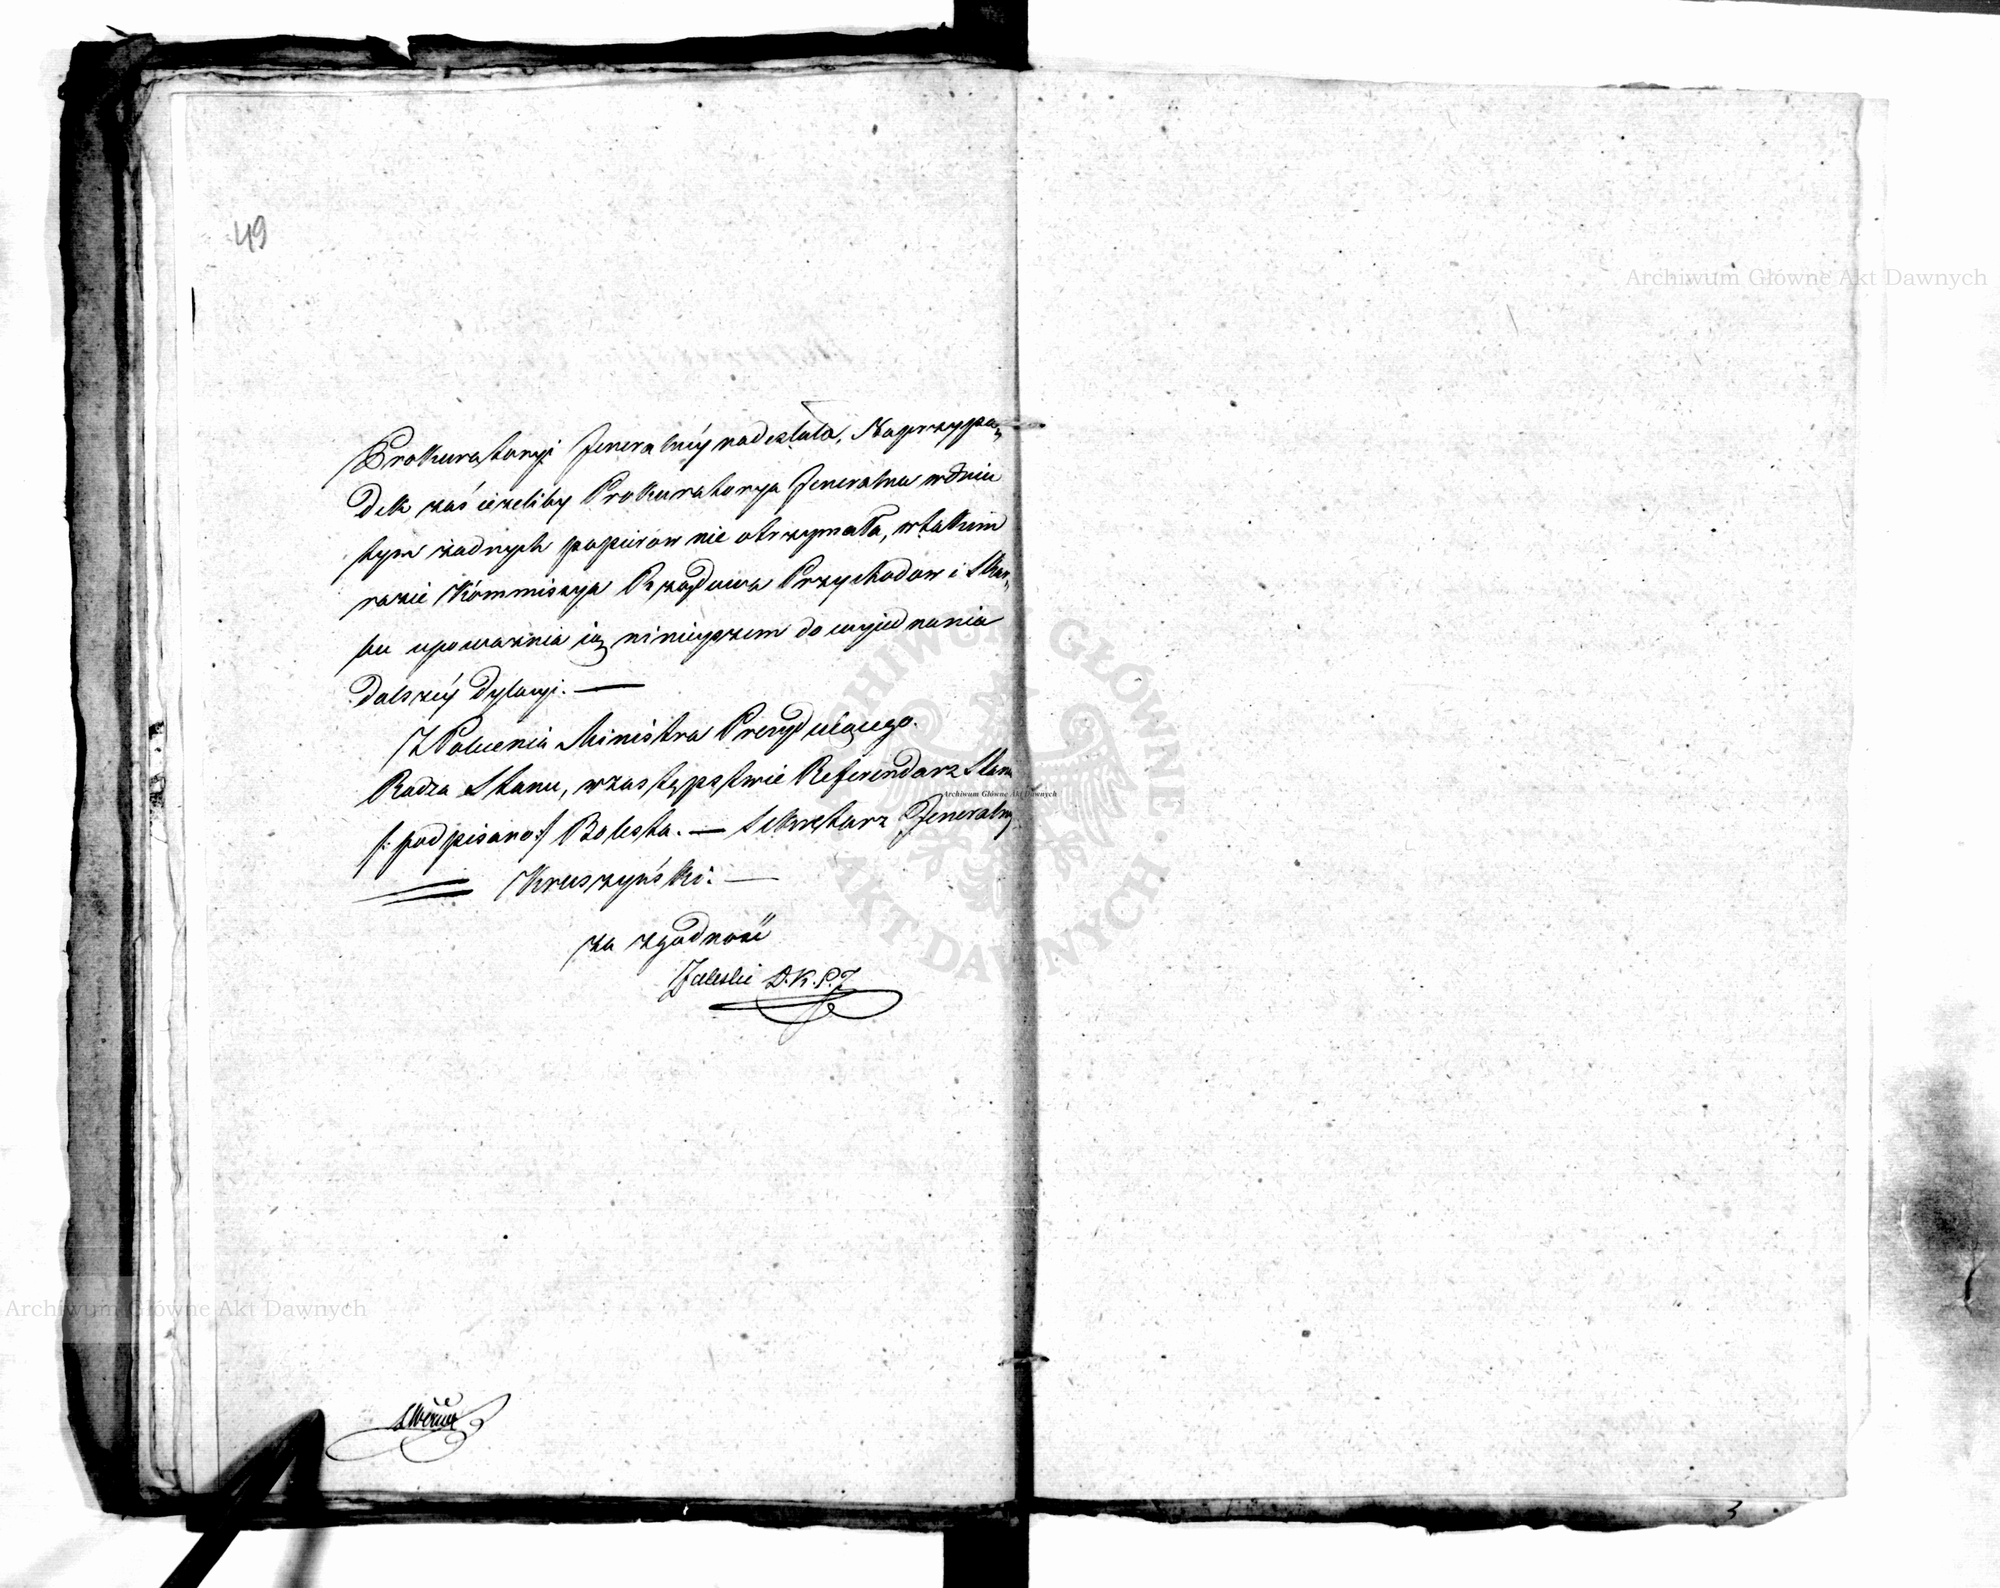 49
Prokuratoryi Jeneralnéy nadesłała, Naprzypa-
dek zaś ieżeliby Prokuratorya Jeneralna w dniu
tym żadnych papierow nie otrzymała, w takim
razie Kommissya Rządowa Przychodow i Skar-
bu upoważnia ią ninieyszem do wyiednania
dalszéy dylacyi. —
Z Polecenia Ministra Prezyduiącego.
Radzca Stanu, w zastępstwie Referendarz Stanu
/: podpisano :/ Bolesta. — Sekretarz Jeneralny
Kruszyński. —
za zgodność
Zaleski D.K.P.J
3
Archiwum Główne Akt Dawnych
Archiwum Główne Akt Dawnych
Archiwum Główne Akt Dawnych
ARCHIWUM GŁÓWNE · AKT DAWNYCH ·